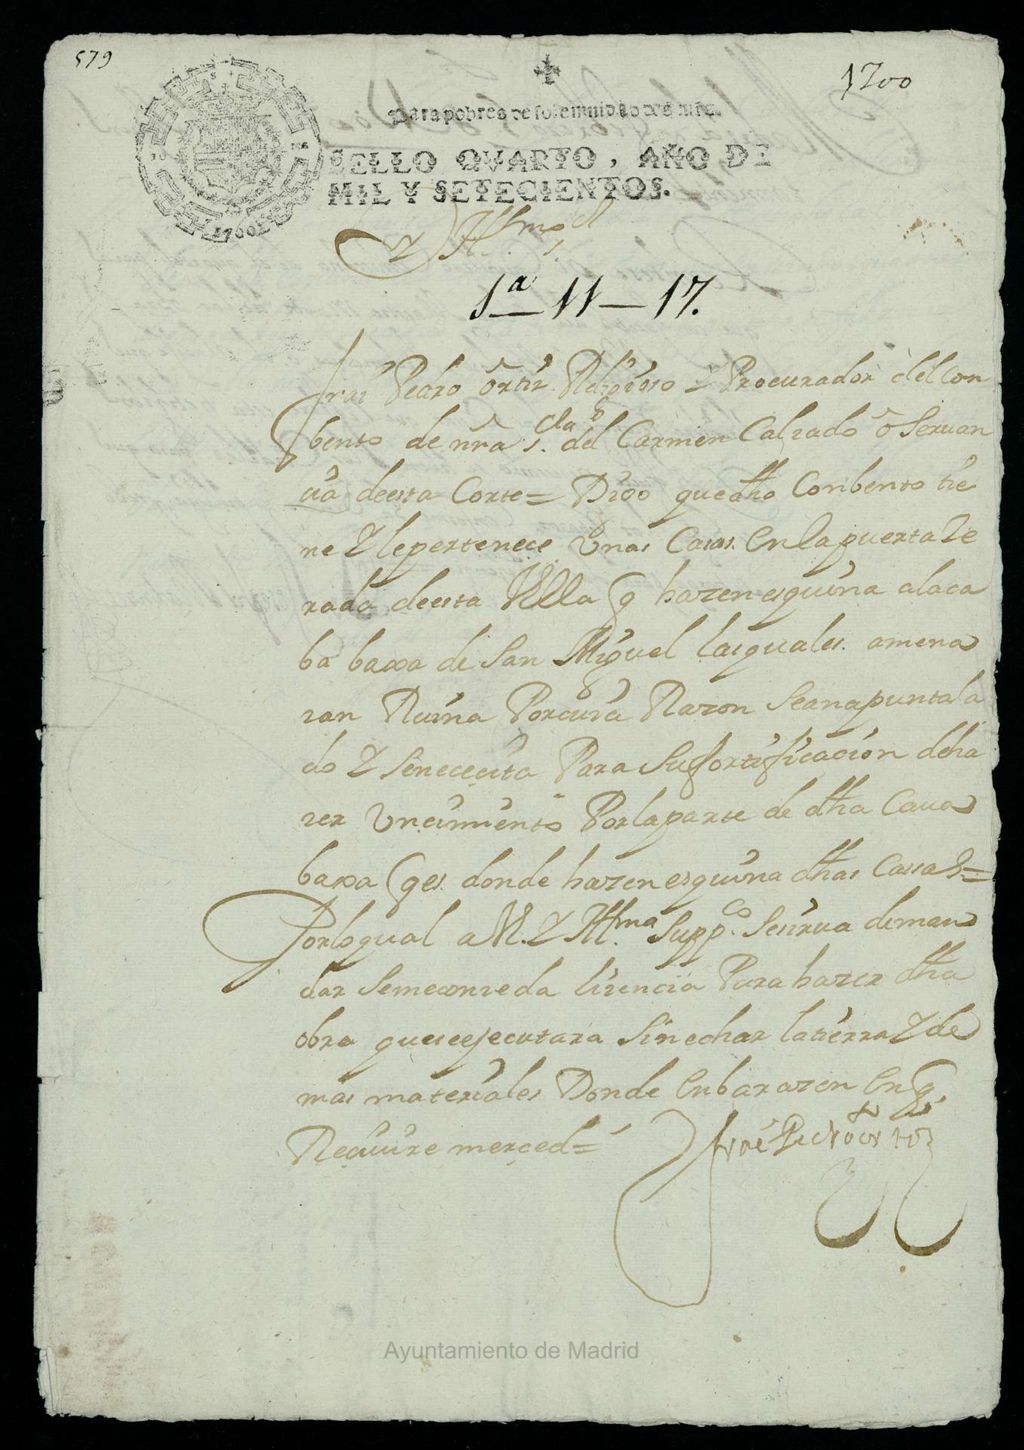 579
1700
Para pobres de solemnidad dos mrs.
SELLO QVARTO, AÑO DE
MIL Y SETECIENTOS.
1700
Yllmo Sr
1ª 11-17.
frai Pedro Ortiz Religioso = Procurador del Con
bento de nrã s.ra del Carmen Calzado õ Seruan
cia de esta Corte = Digo que dho Conbento tie
ne Y le pertenece Unas Casas En la puerta Ze
rada de esta Villa q hazen esquina a la ca
ba baxa de San Miguel las quales amena
zan Ruina Por cuia Razon Se an apuntala
do Y Se nececita Para Su fortificacion de ha
zer Un cimiento Por la parte de dha Caua
baxa q es donde hazen esquina dhas Cassas =
Por lo qual a V. Y Yllma Suppco Se sirua de man
dar Se me conzeda lizencia Para hazer dha
obra que se ejecutara Sin echar la tierra Y de
mas materiales Donde Enbarazen En q
Reciuire merced =
frai Pedro ortiz
Ayuntamiento de Madrid